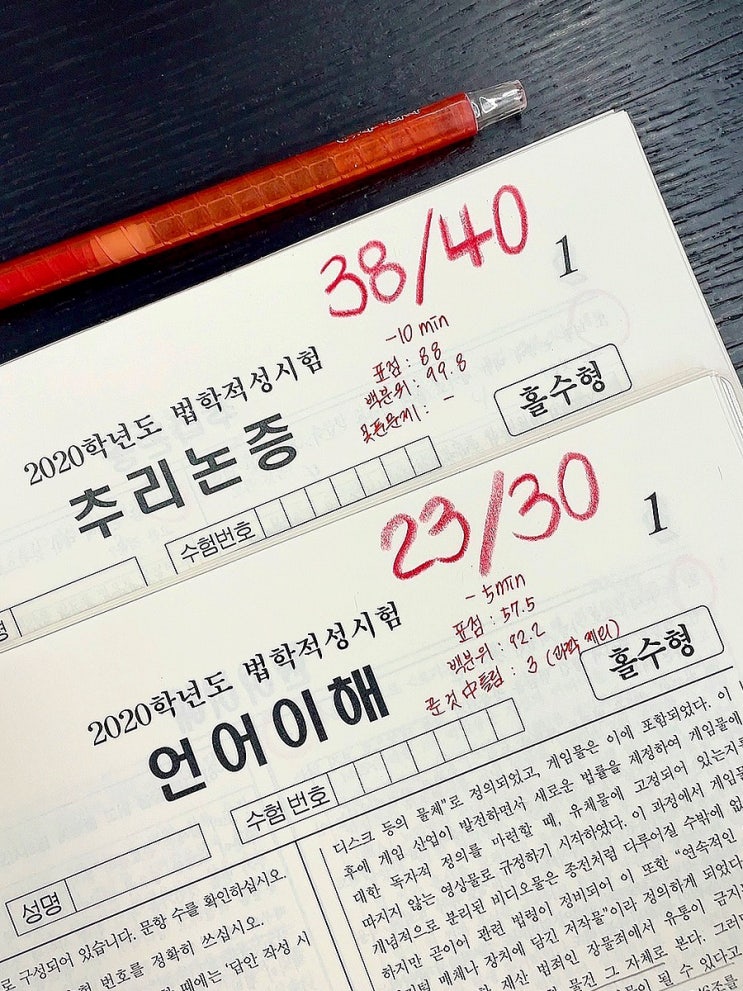 38/40
1
-10 min
표점 : 88
백분위 : 99.8
못푼문제 : -
2020학년도 법학적성시험
홀수형
추리논증
수험번호
23/30
1
-5min
표점 : 57.5
백분위 : 92.2
푼것中틀림 : 3
2020학년도 법학적성시험
홀수형
언어이해
수험 번호
성명
로 구성되어 있습니다. 문항 수를 확인하십시오.
험 번호를 정확히 쓰십시오.
때에는 '답안 작성 시
디스크 등의 물체"로 정의되었고, 게임물은 이에 포함되었다. 이
후에 게임 산업이 발전하면서 새로운 법률을 제정하여 게임물에
대한 독자적 정의를 마련할 때, 유체물에 고정되어 있는지를
따지지 않는 영상물로 규정하기 시작하였다. 이 과정에서 게임물
개념적으로 분리된 비디오물은 종전처럼 다루어질 수밖에 없
하지만 곧이어 관련 법령이 정비되어 이 또한 "연속적인
디지털 매체나 장치에 담긴 저작물"이라 정의하게 되었다
재산 범죄인 장물죄에서 유통이 금지
물건 그 자체로 본다. 그러